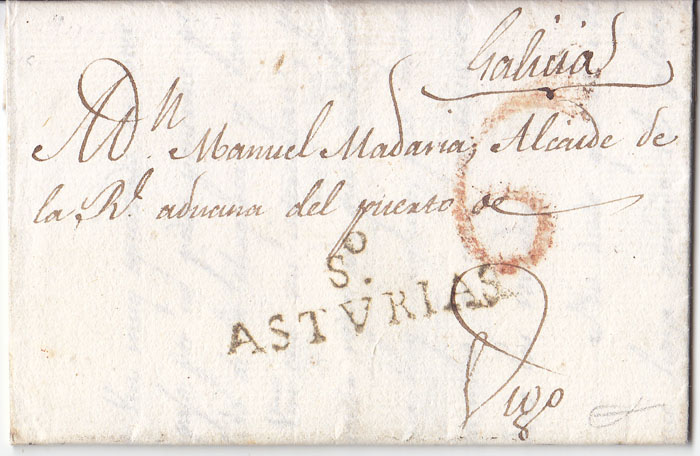 Galicia
A Dn. Manuel Madaria, Alcaide de
la Rl. aduana del puerto de
6
So.
ASTVRIAS
Vigo